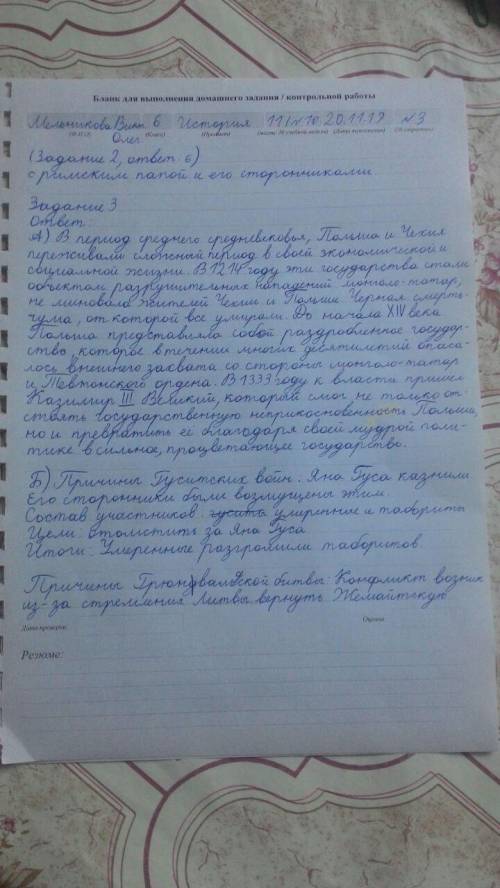 Бланк для выполнения домашнего задания / контрольной работы
Мельникова Викт. 6 История 11/№10. 20.11.19 №3
Олег.
(Задание 2, ответ 6)
с римским папой и его сторонниками
Задание 3
Ответ:
А) В период среднего средневековья, Польша и Чехия
переживали сложный период в своей экономической и
социальной жизни. В 1214 году эти государства стали
объектом разрушительных нападений монголо-татар,
не миновала жителей Чехии и Польше Черная смерть-
чума, от которой все умирали. До начала XIV века
Польша представляла собой раздробленное государ-
ство, которое в течении многих десятилетий опаса-
лось внешнего захвата со стороны монголо-татар
и Тевтонского ордена. В 1333 году к власти пришел
Казимир III Великий, который смог не только от-
стоять государственную неприкосновенность Польши,
но и превратить её благодаря своей мудрой поли-
тике в сильное, процветающее государство.
Б) Причины Гуситских войн. Яна Гуса казнили
Его сторонники были возмущены этим.
Состав участников: умеренные и табориты
Цели: отомстить за Яна Гуса
Итоги: Умеренные разгромили таборитов.
Причины Грюнвальдской битвы: Конфликт возник
из-за стремления Литвы вернуть Жемайтскую
Дата проверки: Оценка
Резюме: